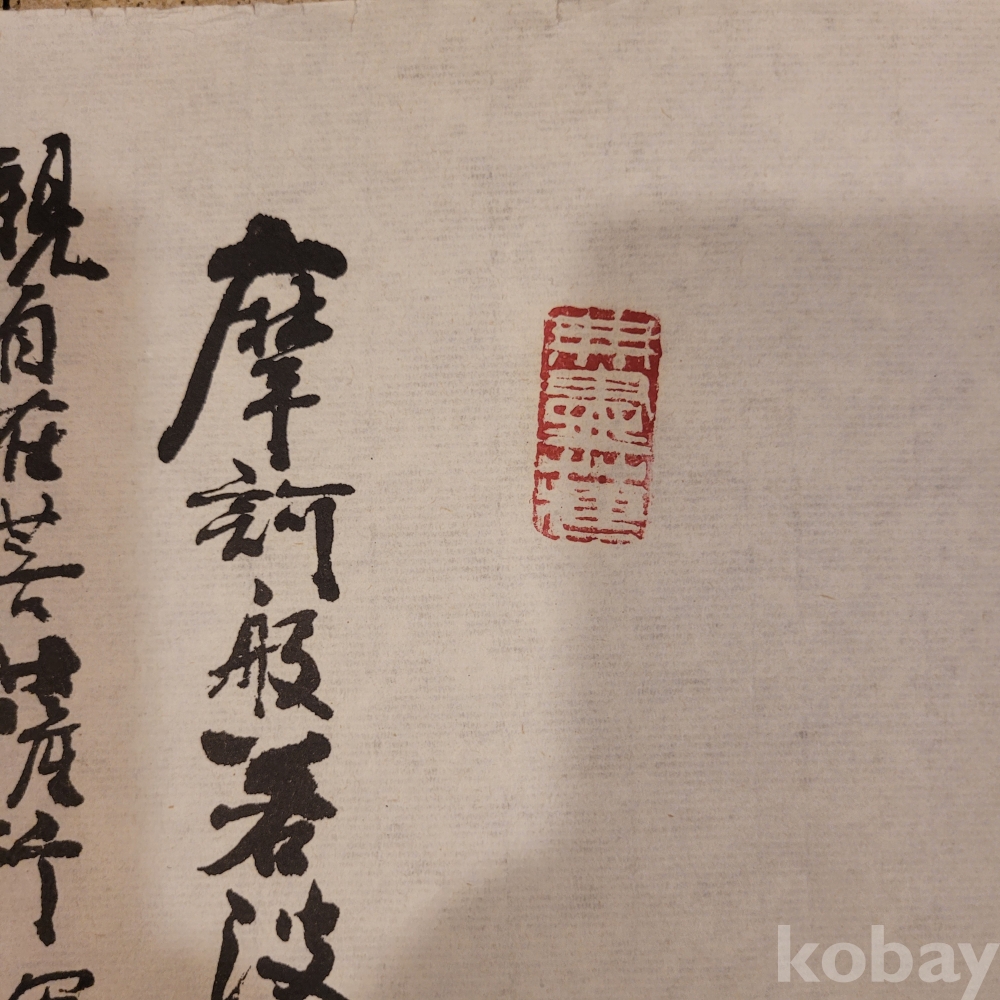 摩訶般若波
觀自在菩薩行
kobay